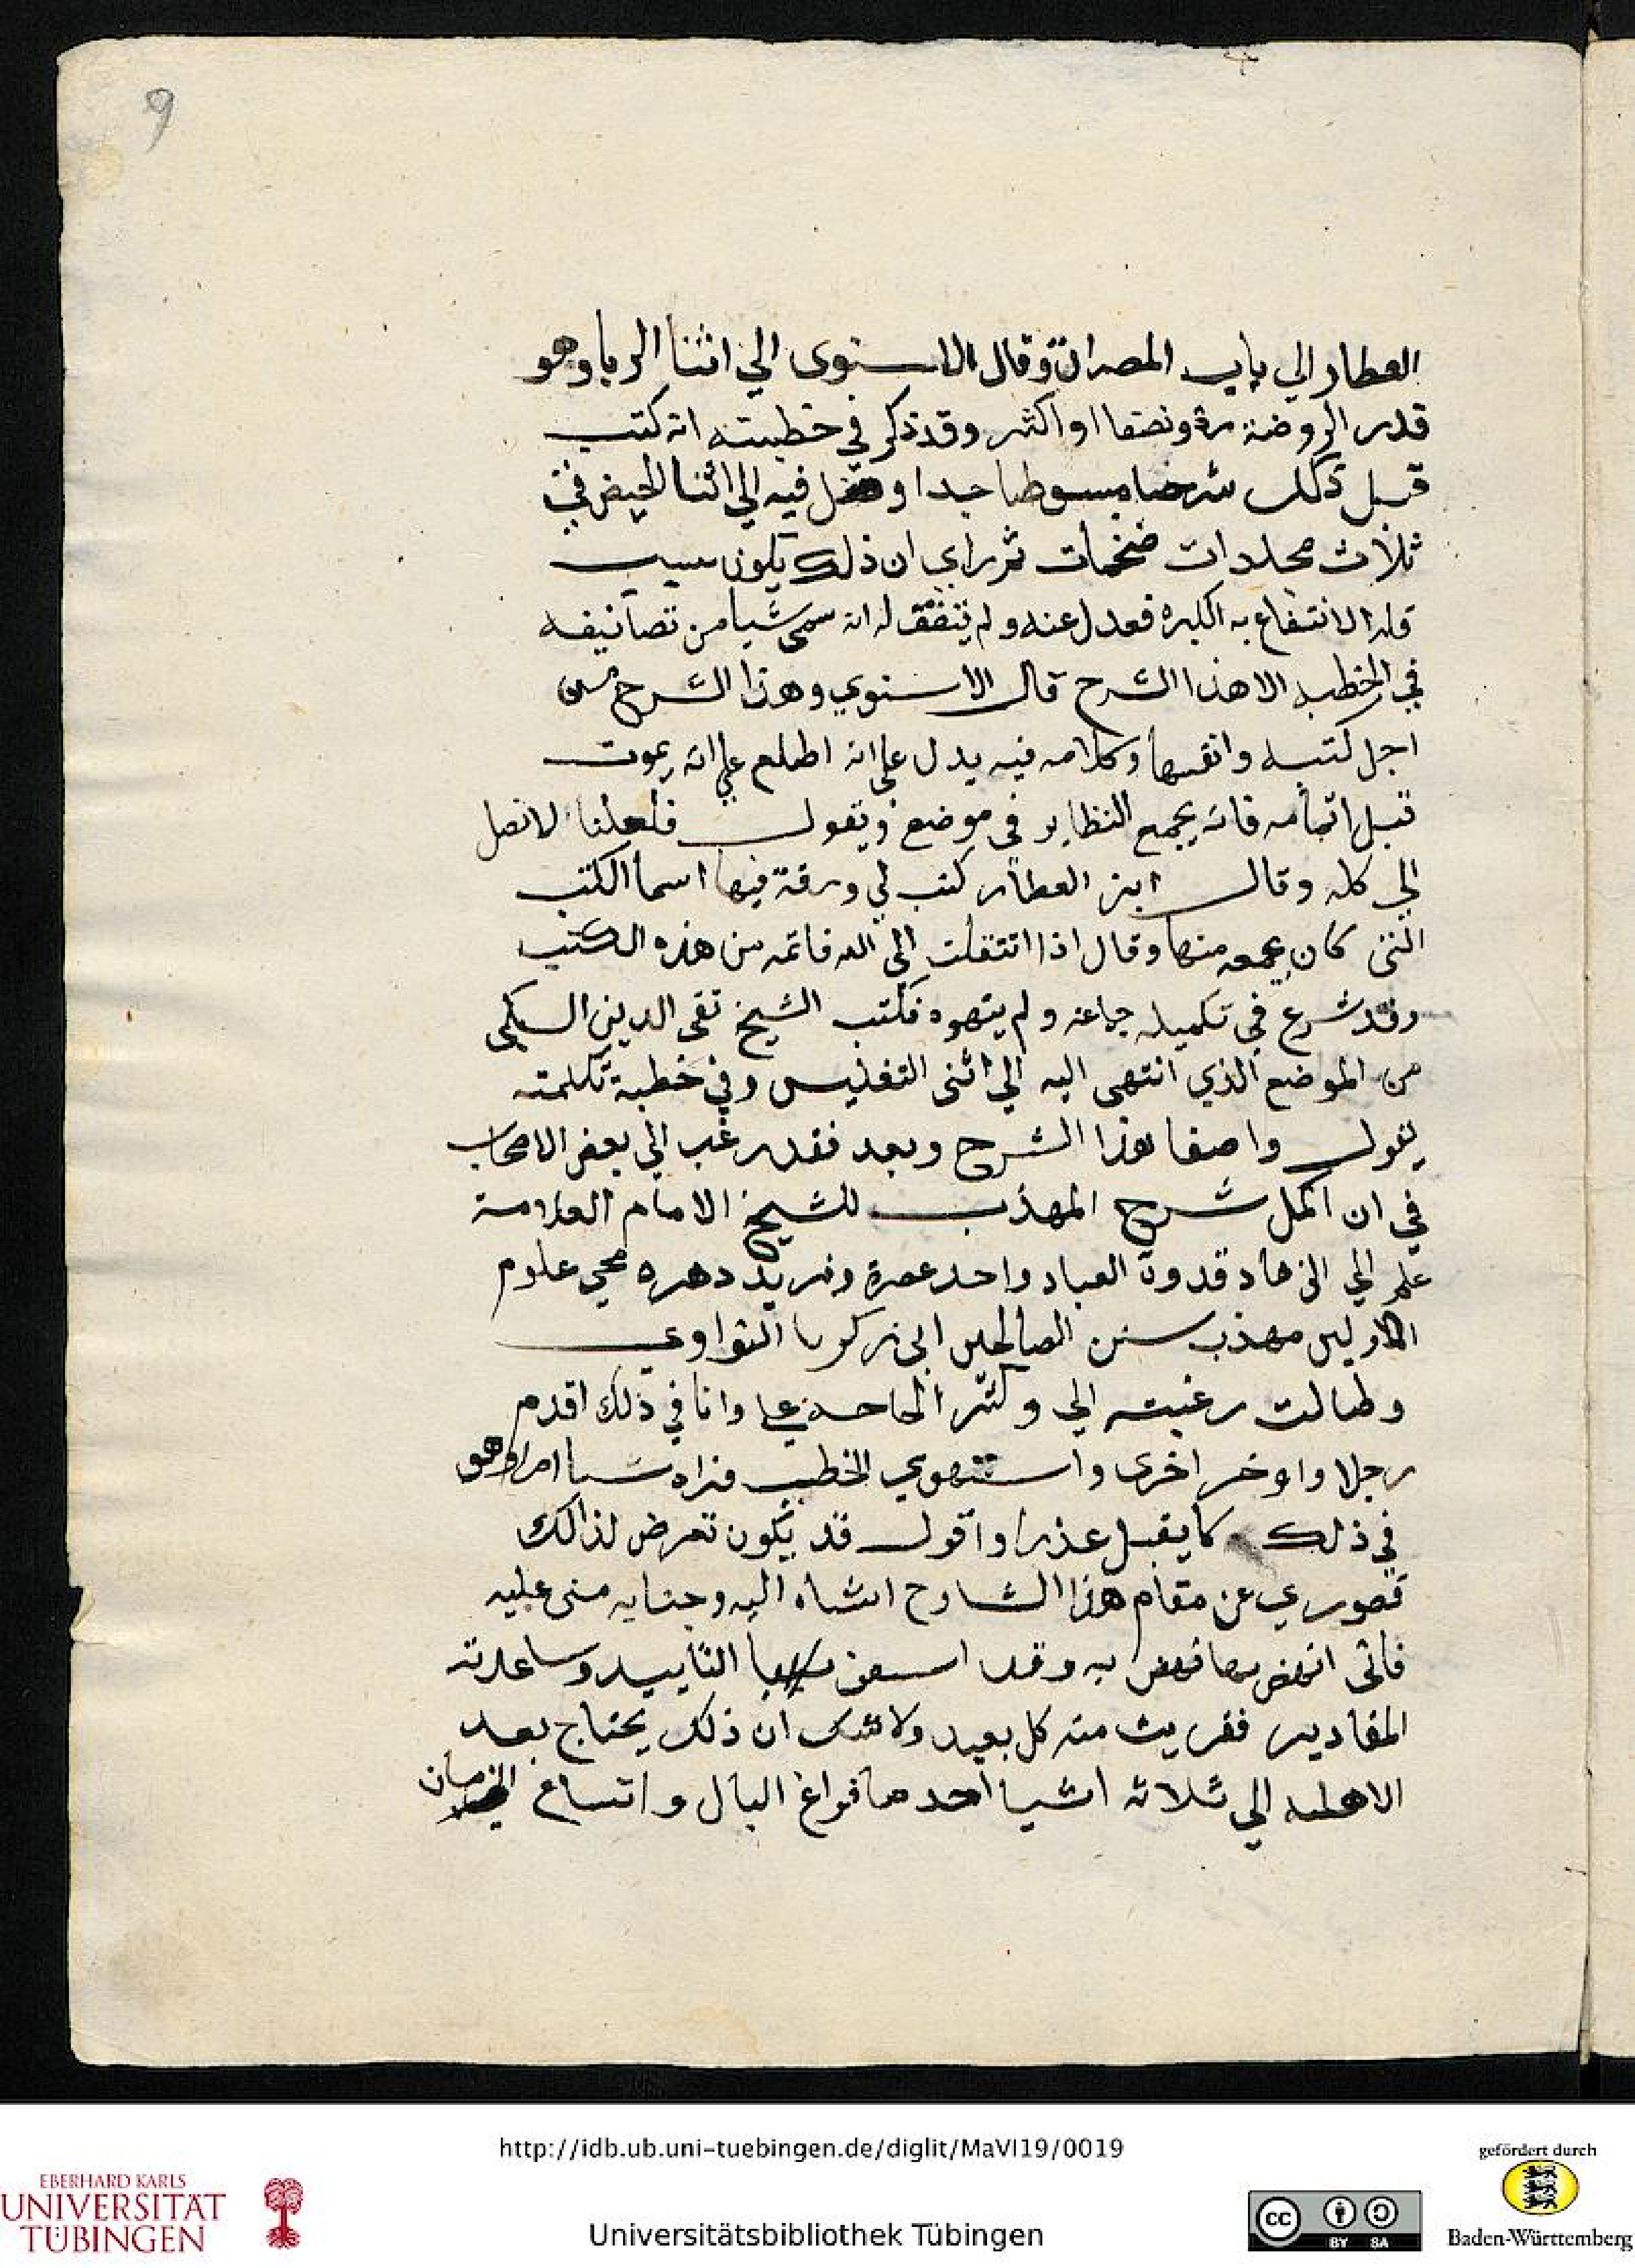 9
العطار الي باب المصراة وقال الاسنوى الي اثنا الربا وهو
قدر الروضة مرة ونصفا او اكثر وقد ذكر في خطبته انه كتب
قبل ذلك شرحا مبسوطا جدا وصل فيه الي اثنا الحيض في
ثلاث مجلدات ضخمات ثم راي ان ذلك يكون سبب
قلة الانتفاع به الكبره فعدل عنه ولم يتفق له انه سمى شيا من تصانيفه
في الخطبه الا هذا الشرح قال الاسنوي وهذا الشرح من
اجل كتبه وانفسها وكلامه فيه يدل على انه اطلع علي انه يموت
قبل اتمامه فانه يجمع النظاير في موضع ويقول فلعلنا لا نصل
الي كله وقال ابن العطار كتب لي ورقة فيها اسما الكتب
التى كان يجمعه منها وقال اذا انتقلت الي الله فاتمه من هذه الكتب
وقد شرع في تكميله جماعه ولم يتموه فكتب الشيخ تقى الدين السبكى
من الموضع الذي انتهى اليه الي اثنى التفليس وفي خطبة تكلمته
يقول واصفا هذا الشرح وبعد فقد رغب الي بعض الاصحاب
في ان اكمل شرح المهذب للشيخ الامام العلامة
علم الي الزهاد قدوة العباد واحد عصره وفريد دهره محي علوم
الاولين مهذب سنن الصالحين ابى زكريا النواوي
وطالت رغبته الي وكثر الحاحه علي وانا في ذلك اقدم
رجلا واوخر اخرى واستهوي الخطب فزاه شيا امرا وهو
في ذلك كما يقبل عذرا واقول قد يكون تعرض لذالك
قصوري عن مقام هذا الشارح اشاه اليه وجنايه منى عليه
فانى انهض بما نهض به وقد اسعف بالتاييد وساعدته
المقادير فقربت منه كل بعيد ولا شك ان ذلك يحتاج بعد
الاهليه الي ثلاثه اشيا احدها فراغ البال واتساع الزمان
http://idb.ub.uni-tuebingen.de/diglit/MaVI19/0019
EBERHARD KARLS
UNIVERSITÄT
TÜBINGEN
Universitätsbibliothek Tübingen
cc BY SA
gefördert durch
Baden-Württemberg